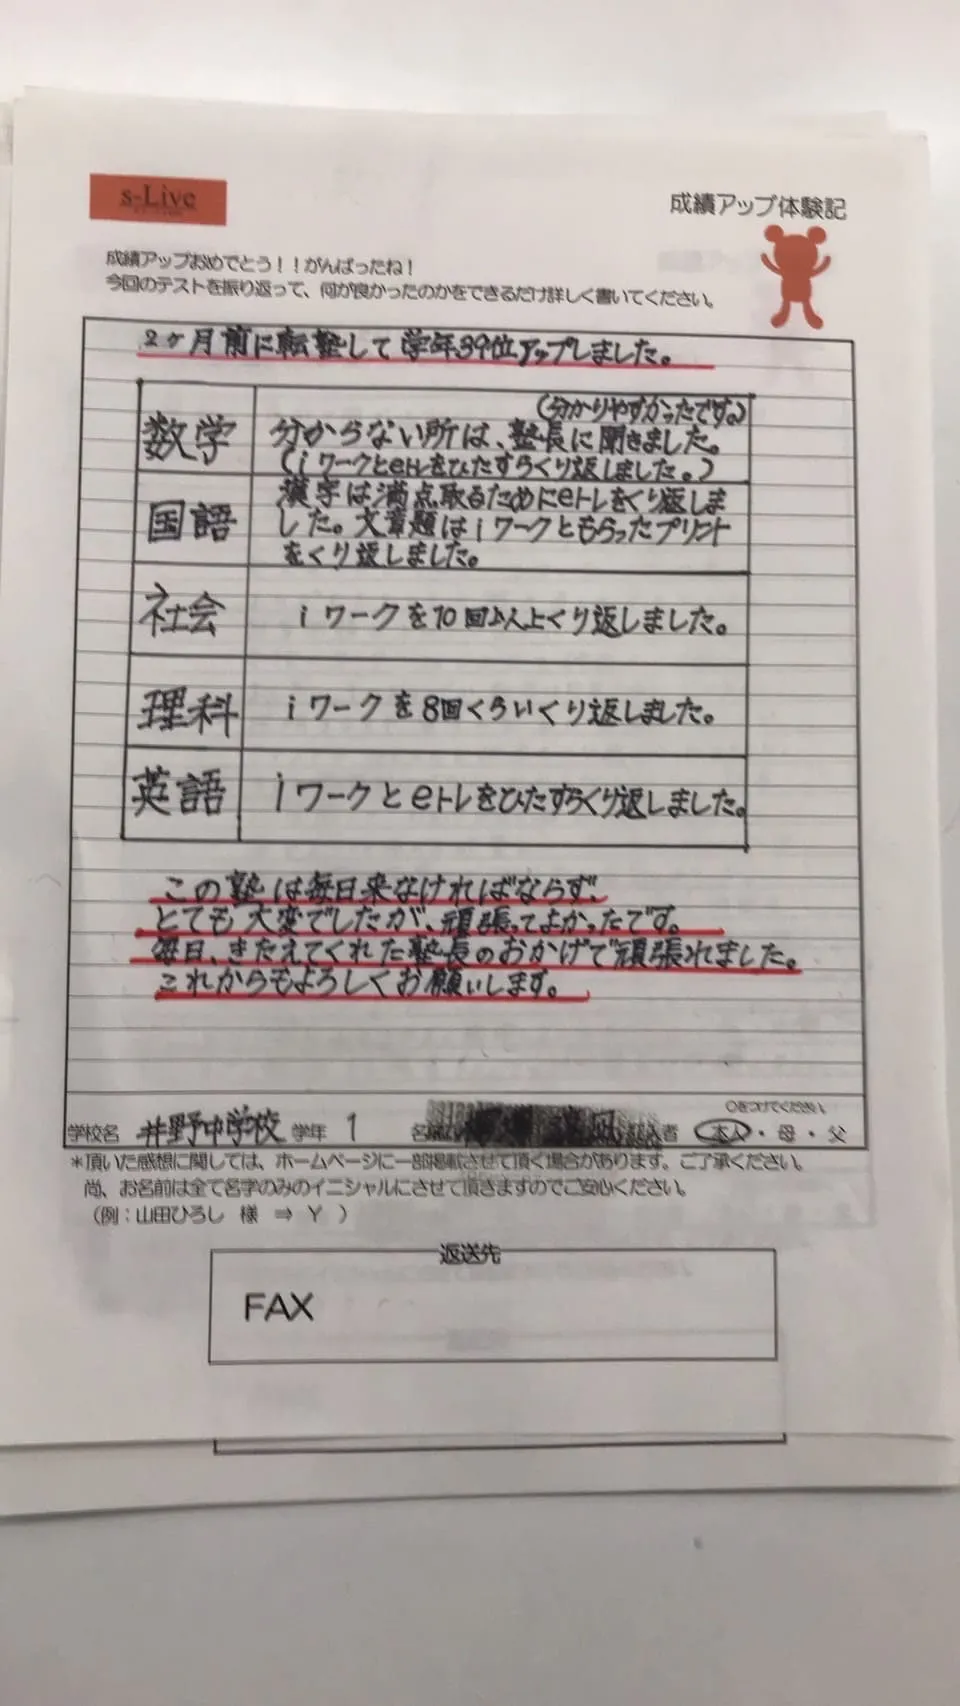 s-Live
成績アップ体験記
成績アップおめでとう！！がんばったね！
今回のテストを振り返って、何が良かったのかをできるだけ詳しく書いてください。
2ヶ月前に転塾して学年39位アップしました。
数学
(分かりやすかったです。)
分からない所は、塾長に聞きました。
(iワークとeトレをひたすらくり返しました。)
国語
漢字は満点取るためにeトレをくり返しま
した。文章題はiワークともらったプリント
をくり返しました。
社会
iワークを10回以上くり返しました。
理科
iワークを8回くらいくり返しました。
英語
iワークとeトレをひたすらくり返しました。
この塾は毎日来なければならず、
とても大変でしたが、頑張ってよかったです。
毎日、きたえてくれた塾長のおかげで頑張れました。
これからもよろしくお願いします。
○をつけてください。
学校名 井野中学校 学年 1 名 入者 本人・母・父
*頂いた感想に関しては、ホームページに一部掲載させて頂く場合があります。ご了承ください。
尚、お名前は全て名字のみのイニシャルにさせて頂きますのでご安心ください。
（例：山田ひろし 様 ⇒ Y ）
返送先
FAX